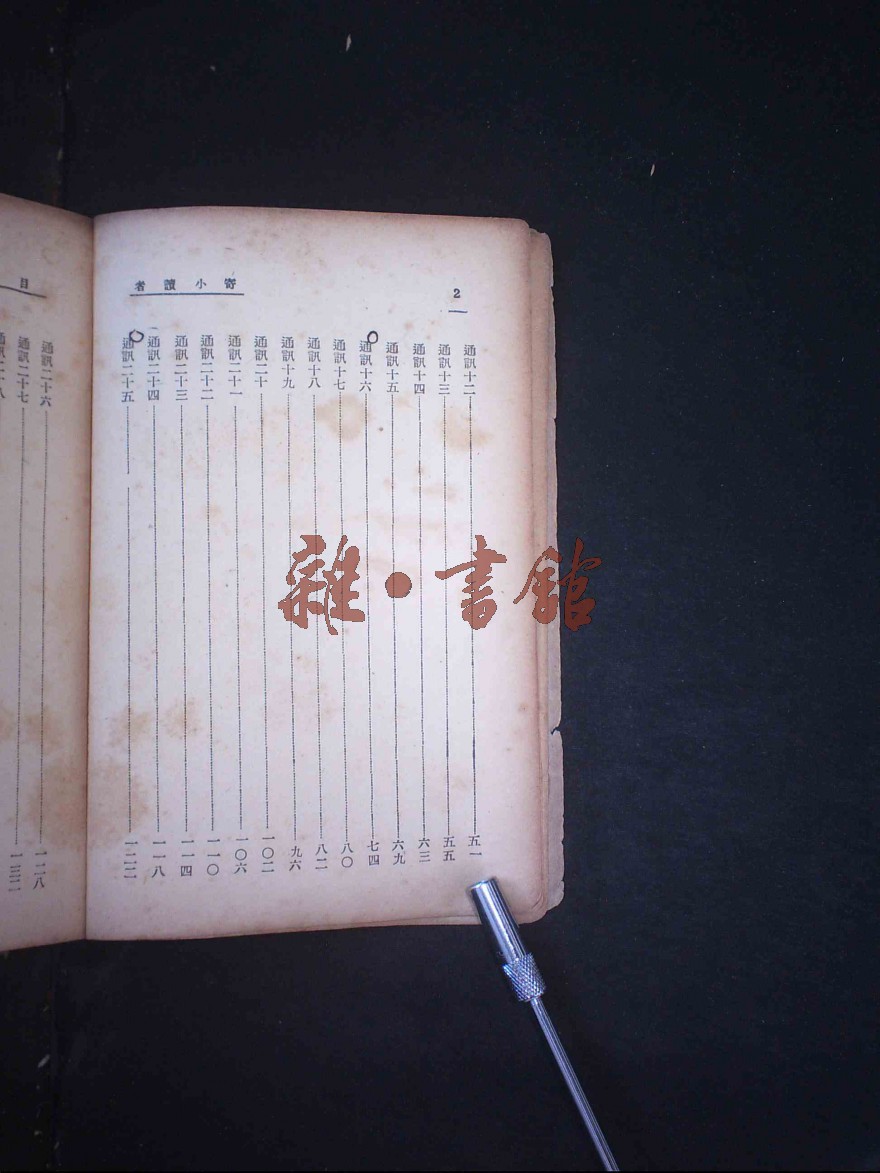 寄小讀者
2
通訊十二 五一
通訊十三 五五
通訊十四 六三
通訊十五 六九
通訊十六 七四
通訊十七 八〇
通訊十八 八二
通訊十九 九六
通訊二十 一〇二
通訊二十一 一〇六
通訊二十二 一一〇
通訊二十三 一一四
通訊二十四 一一八
通訊二十五 一二二
目
通訊二十六 一二八
通訊二十七 一三二
通訊二十八
雜·書館